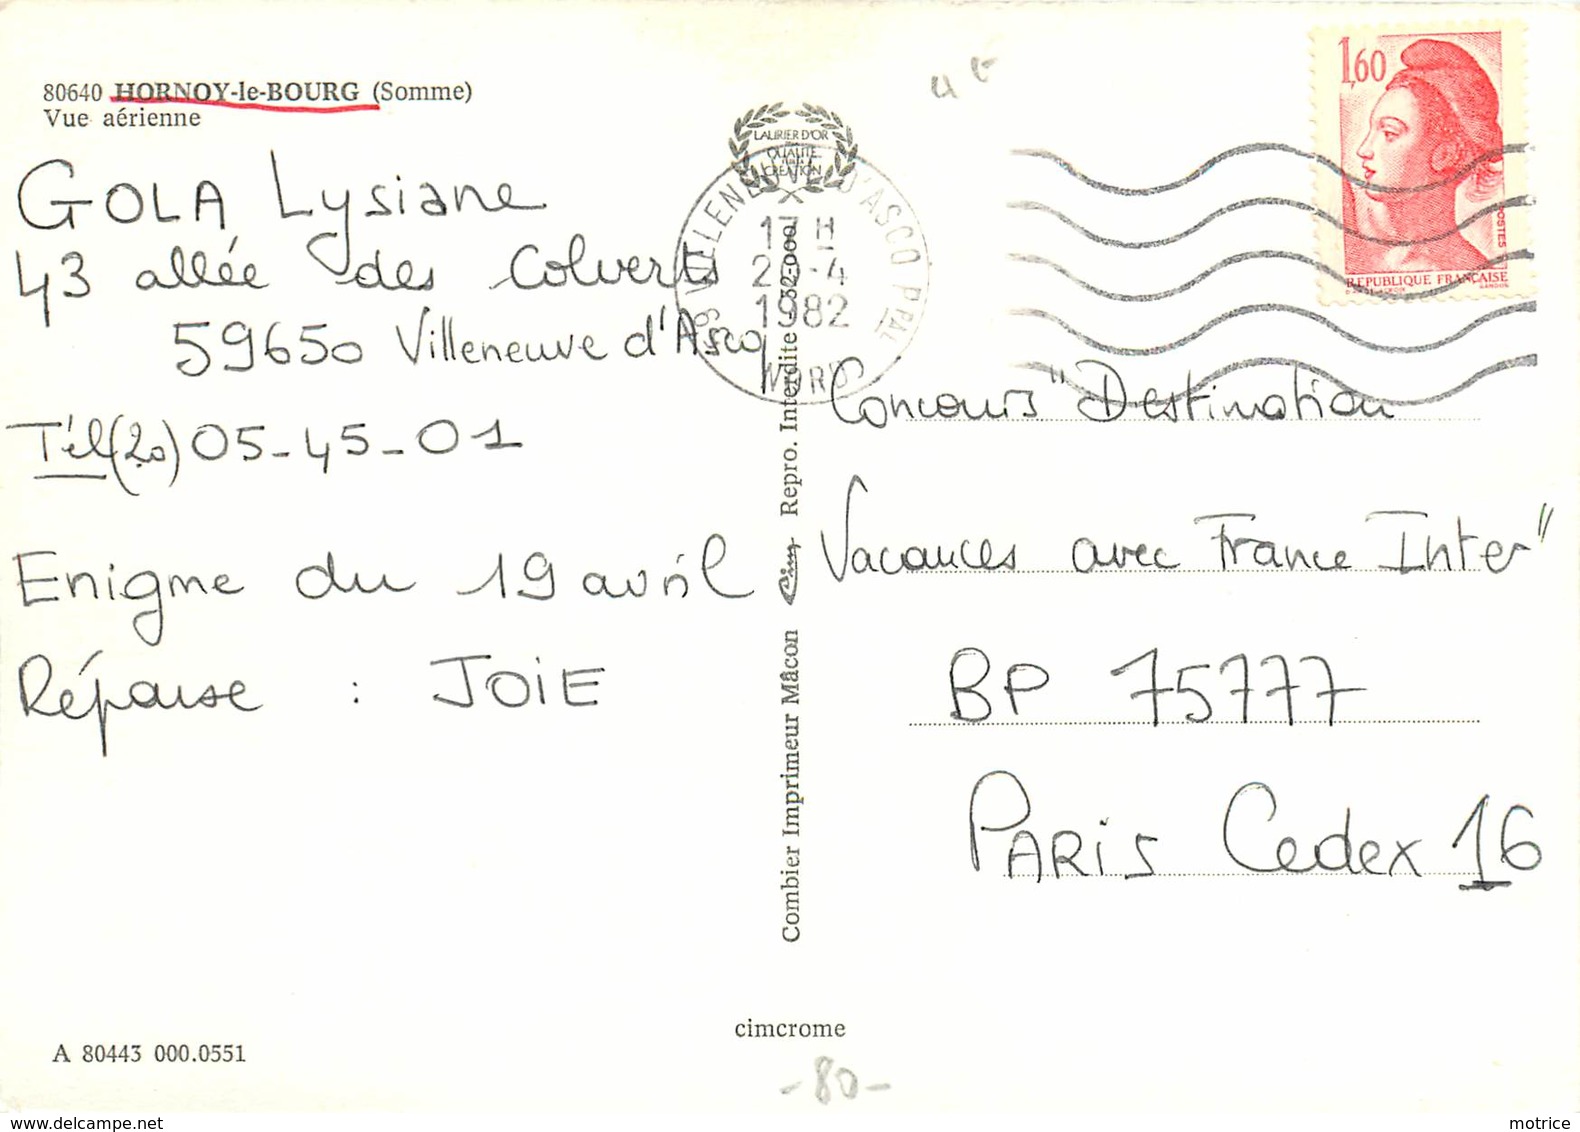 80640 HORNOY-le-BOURG (Somme)
Vue aérienne
GOLA Lysiane
43 allée des Colverts
59650 Villeneuve d'Ascq
Tél (20) 05-45-01
Enigme du 19 avril
Réponse : JOIE
A 80443 000.0551
LAURIER D'OR
QUALITÉ
CRÉATION
D'ASCQ PPAL
17 H
-4
1982
NORD
Combier Imprimeur Mâcon Cim Repro. Interdite
cimcrome
-80-
1,60
POSTES
REPUBLIQUE FRANÇAISE
GANDON
Concours "Destination
Vacances avec France Inter"
BP 75777
PARIS Cedex 16
motrice